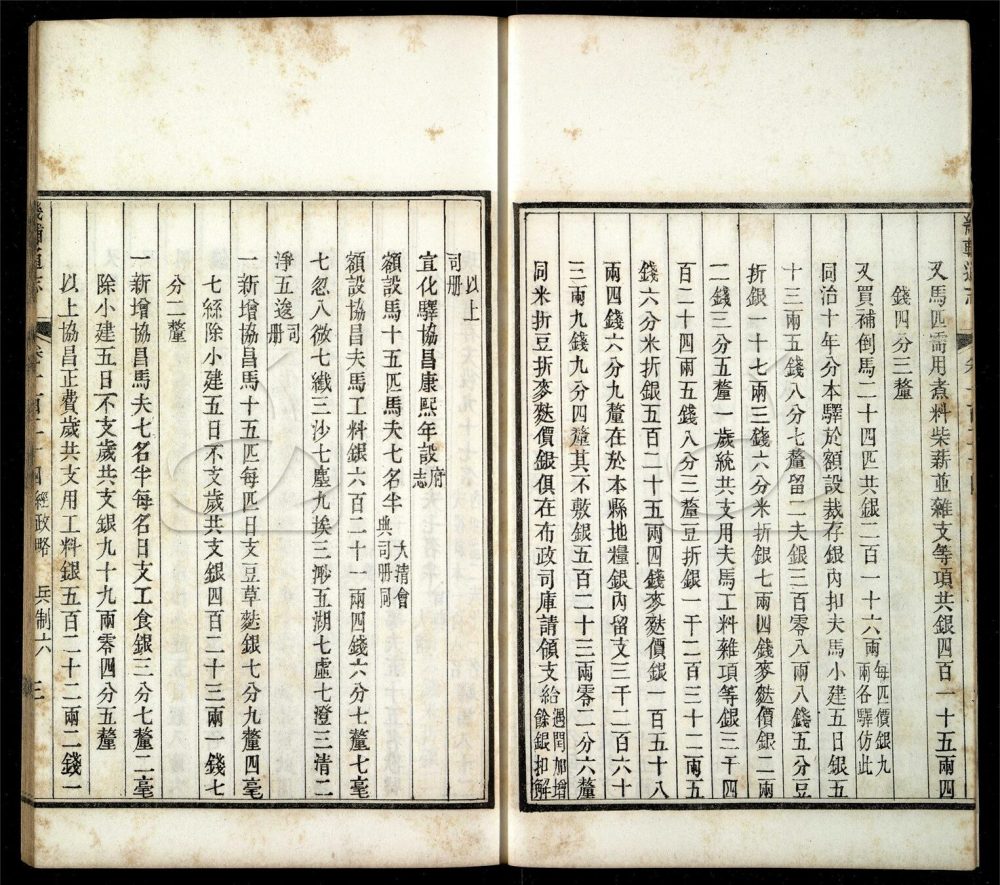 又馬匹需用煮料柴薪並雜支等項共銀四百一十五兩四
錢四分三釐
又買補倒馬二十四匹共銀二百一十六兩每匹價銀九兩各驛仿此
同治十年分本驛於額設裁存銀內扣夫馬小建五日銀五
十三兩五錢八分七釐留二夫銀三百零八兩八錢五分豆
折銀一十七兩三錢六分米折銀七兩四錢麥麩價銀二兩
二錢三分五釐一歲統共支用夫馬工料雜項等銀三千四
百二十四兩五錢八分三釐豆折銀一千二百三十二兩五
錢六分米折銀五百二十五兩四錢麥麩價銀一百五十八
兩四錢六分九釐在於本縣地糧銀內留支三千二百六十
三兩九錢九分四釐其不敷銀五百二十三兩零二分六釐
同米折豆折麥麩價銀俱在布政司庫請領支給遇閏加增餘銀扣解
以上
司册
宣化驛協昌康熙年設府志
額設馬十五匹馬夫七名半大清會典司册同
額設協昌夫馬工料銀六百二十一兩四錢六分七釐七毫
七忽八微七纖三沙七塵九埃三渺五湖七虛七澄三清二
淨五逡司册
一新增協昌馬十五匹每匹日支豆草麩銀七分九釐四毫
七絲除小建五日不支歲共支銀四百二十三兩一錢七
分二釐
一新增協昌馬夫七名半每名日支工食銀三分七釐二毫
除小建五日不支歲共支銀九十九兩零四分五釐
以上協昌正費歲共支用工料銀五百二十二兩二錢一
畿輔通志 卷一百二十四 經政略 兵制六 三